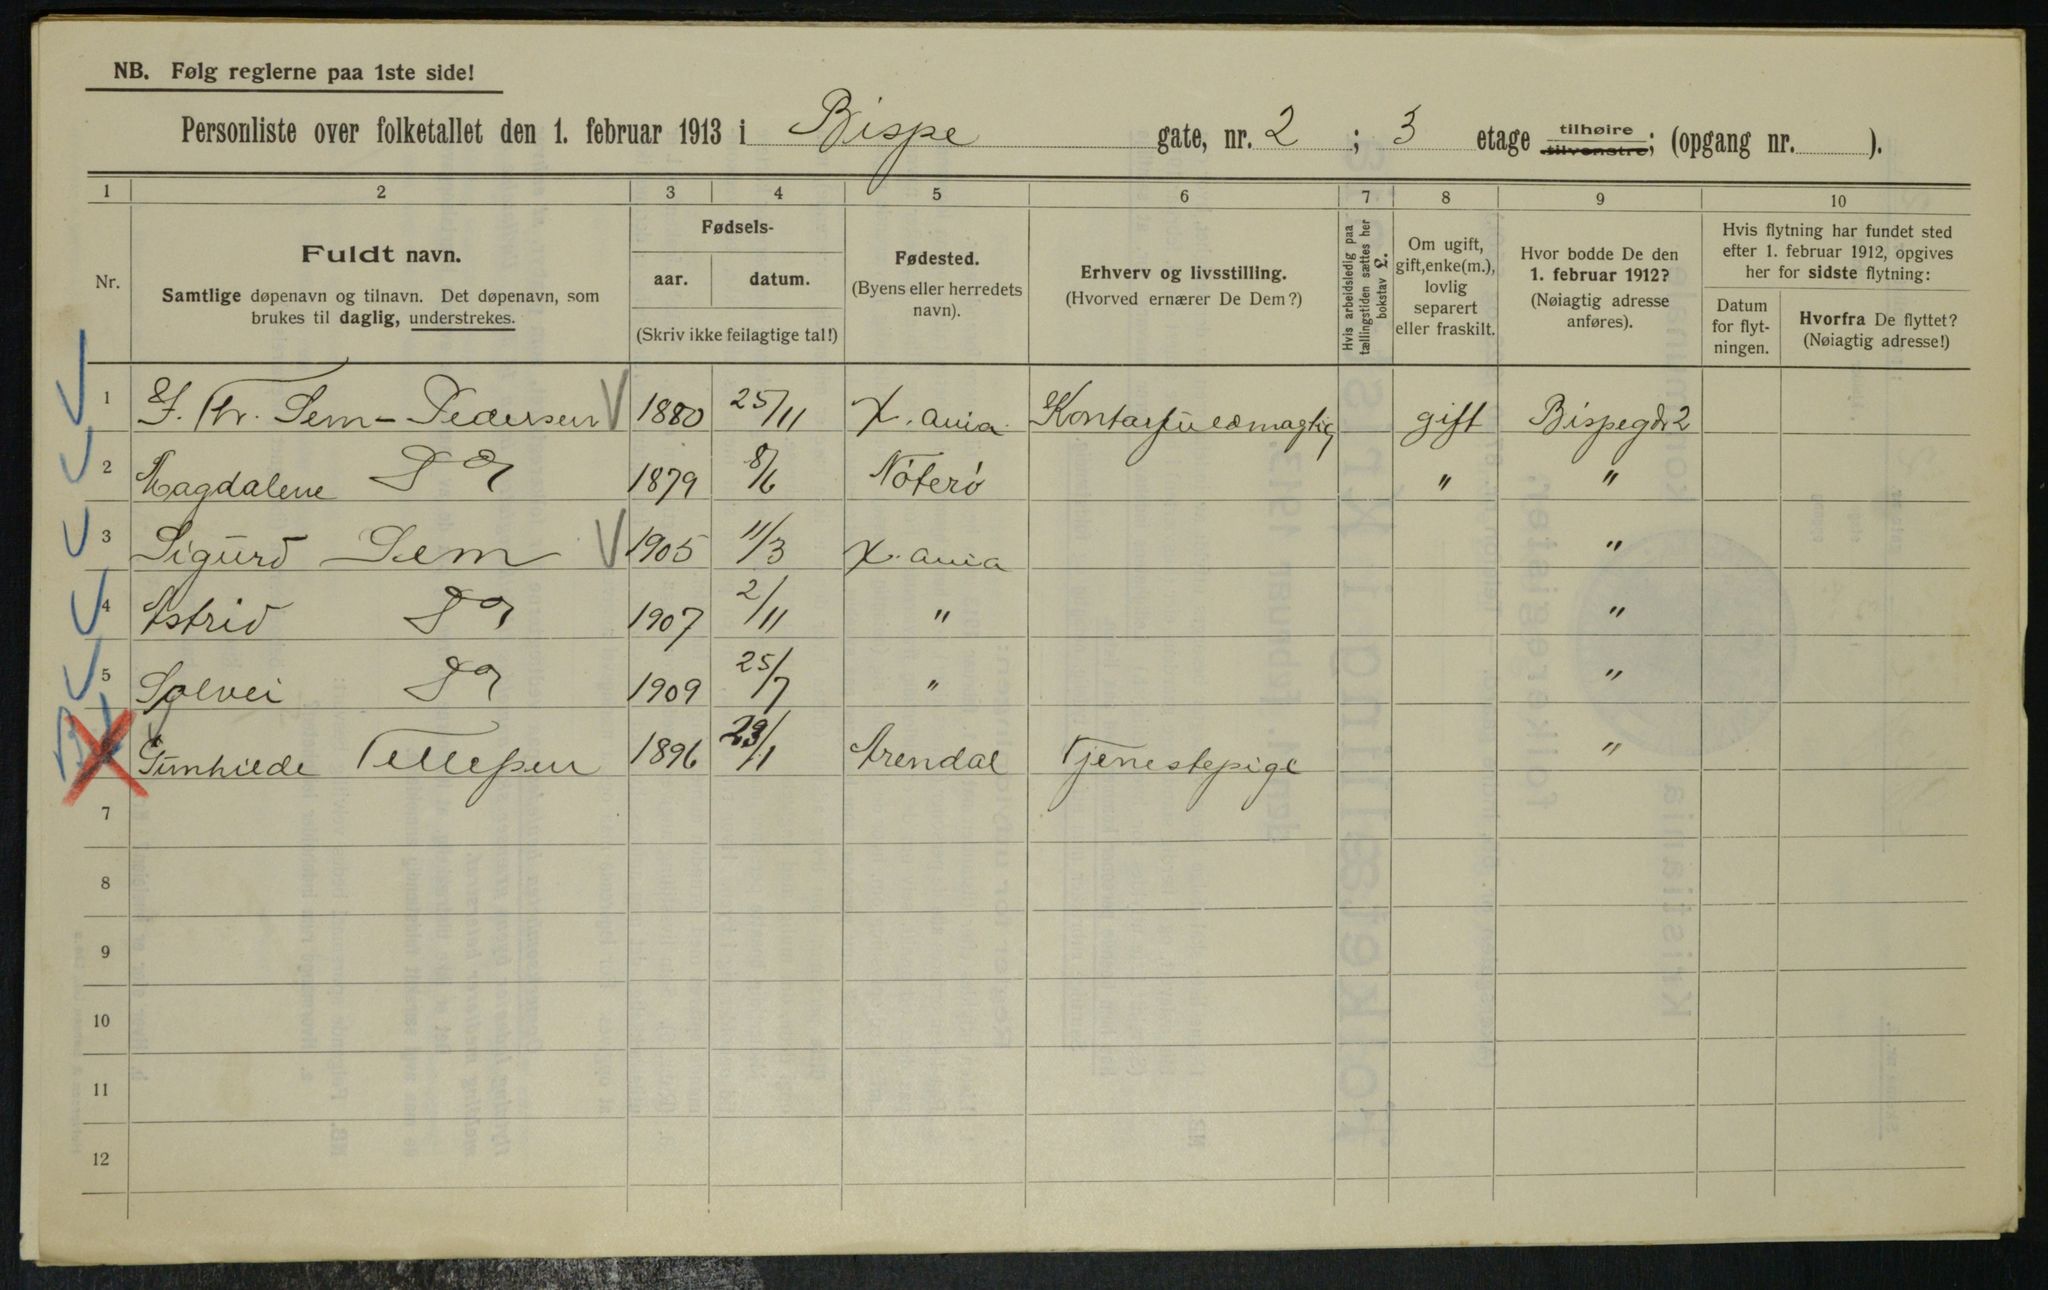 NB. Følg reglerne paa 1ste side!
Personliste over folketallet den 1. februar 1913 i Bispe gate, nr. 2 ; 3 etage tilhøire tilvenstre; (opgang nr. ).
1 2 3 4 5 6 7 8 9 10
Nr.
Fuldt navn.
Samtlige døpenavn og tilnavn. Det døpenavn, som
brukes til daglig, understrekes.
Fødsels-
aar. datum.
(Skriv ikke feilagtige tal!)
Fødested.
(Byens eller herredets
navn).
Erhverv og livsstilling.
(Hvorved ernærer De Dem?)
Hvis arbeidsledig paa
tællingstiden sættes her
bokstav L.
Om ugift,
gift, enke(m.),
lovlig
separert
eller fraskilt.
Hvor bodde De den
1. februar 1912?
(Nøiagtig adresse
anføres).
Hvis flytning har fundet sted
efter 1. februar 1912, opgives
her for sidste flytning:
Datum
for flyt-
ningen.
Hvorfra De flyttet?
(Nøiagtig adresse!)
1 Thr. Sem-Pedersen 1880 25/11 X.ania Kontorfuldmægtig gift Bispegd 2
2 Magdalene Do 1879 8/6 Nøterø " "
3 Sigurd Sem 1905 11/3 X.ania "
4 Astrid Do 1907 2/11 " "
5 Solvei Do 1909 25/7 " "
Gunhilde Tellefsen 1896 23/1 Arendal Tjenestepige "
7
8
9
10
11
12